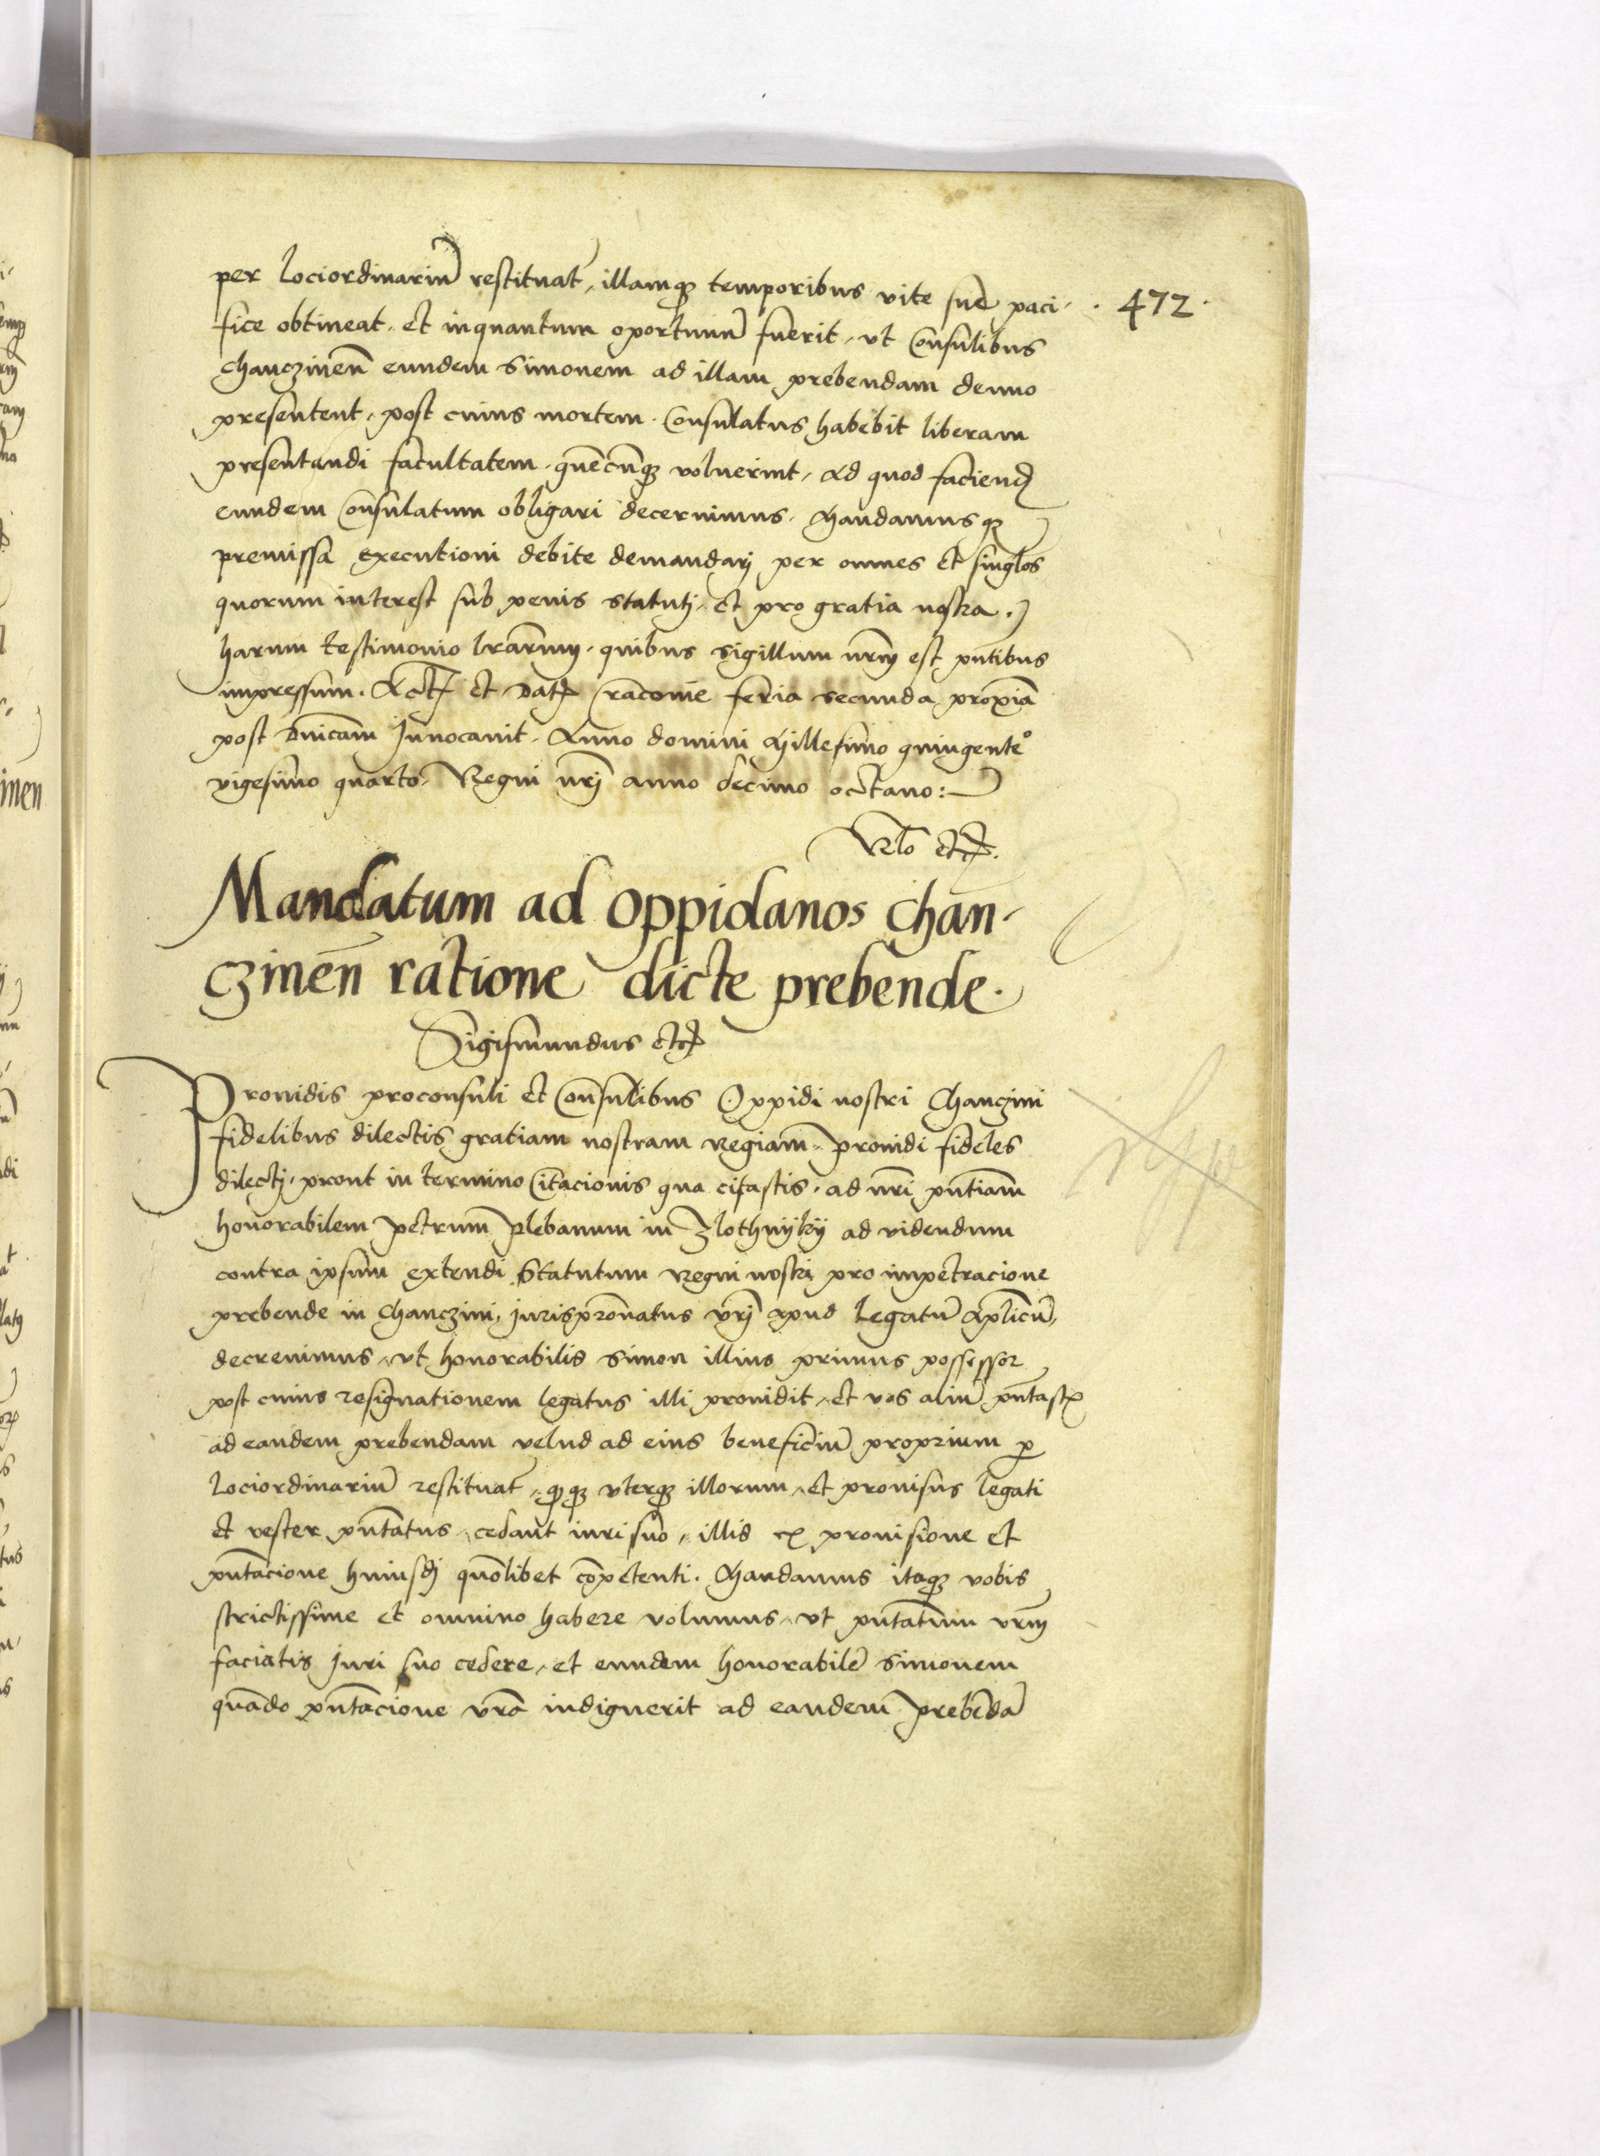 per lociordinariū restituat̄, illamqꝫ temporibus vite sue paci-
· 472 ·
fice obtineat, et inquantum oportunū fuerit, vt Consulibus
Chanczinen̄ eundem Simonem ad illam prebendam denuo
presentent, post cuius mortem Consulatus habebit liberam
presentandi facultatem, quēcūqꝫ voluerint, Ad quod faciend
eundem Consulatum obligari decernimus. Mandamusqꝫ
premissa executioni debite demandarj per omnes et singłos
quorum interest sub penis statutj, et pro gratia nostra.
harum testimonio lrarum̄, quibus sigillum nrm̄ est pn̄tibus
impressum. Act et Dat Cracouie feria secunda proxīa
post Dnīcam Inuocauit, Anno domini Millesimo quingente°
vigesimo quarto, Regni nrī anno decimo octauo:
Rło etc.
Mandatum ad oppidanos Chan-
czinen̄ ratione dicte prebende.
Sigismundus etc
Prouidis proconsuli et Consulibus Oppidi nostri Chanczini
fidelibus dilectis gratiam nostram Regiam, prouidi fideles
dilectj, prout in termino Citacionis qua citastis, ad nrī pn̄tiam
honorabilem petrum plebanum in Zlothnÿkÿ ad videndum
contra ipsum extendi Statutum Regni nostri pro impetracione
prebende in Chanczini, Jurispr̄onatus vrī apud Legatū Apl̄icū,
decreuimus, vt honorabilis Simon illius primus possessor
post cuius resignationem legatus illi prouidit, et vos aliū pn̄tast
ad eandem prebendam velud ad eius beneficiū proprium ꝑ
lociordinariū restituat̄, qꝫ vterqꝫ illorum, et prouisus legati
et vester pn̄tatus, cedant iuri suo, illis ex prouisione et
pn̄tacione huiusdj quōlibet cōpetenti. Mandamus itaqꝫ vobis
strictissime et omnino habere volumus, vt pn̄tatum vrm̄
faciatis Juri suo cedere, et eundem honorabilē Simonem
quādo pn̄tacione vrā indiguerit ad eandem prebēdā